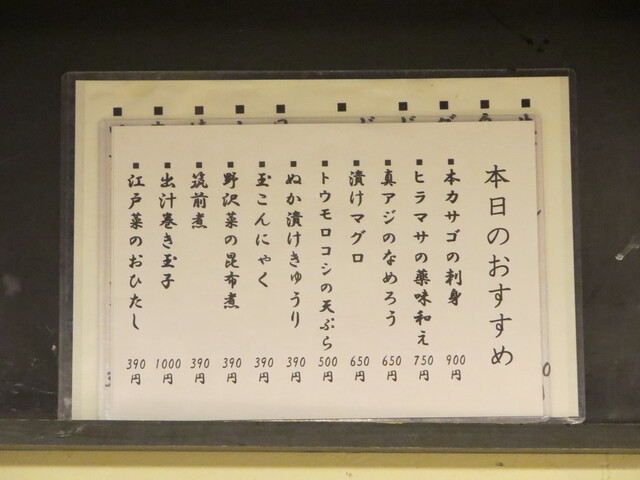 本日のおすすめ
■本カサゴの刺身 900円
■ヒラマサの薬味和え 750円
■真アジのなめろう 650円
■漬けマグロ 650円
■トウモロコシの天ぷら 500円
■ぬか漬けきゅうり 390円
■玉こんにゃく 390円
■野沢菜の昆布煮 390円
■筑前煮 390円
■出汁巻き玉子 1000円
■江戸菜のおひたし 390円